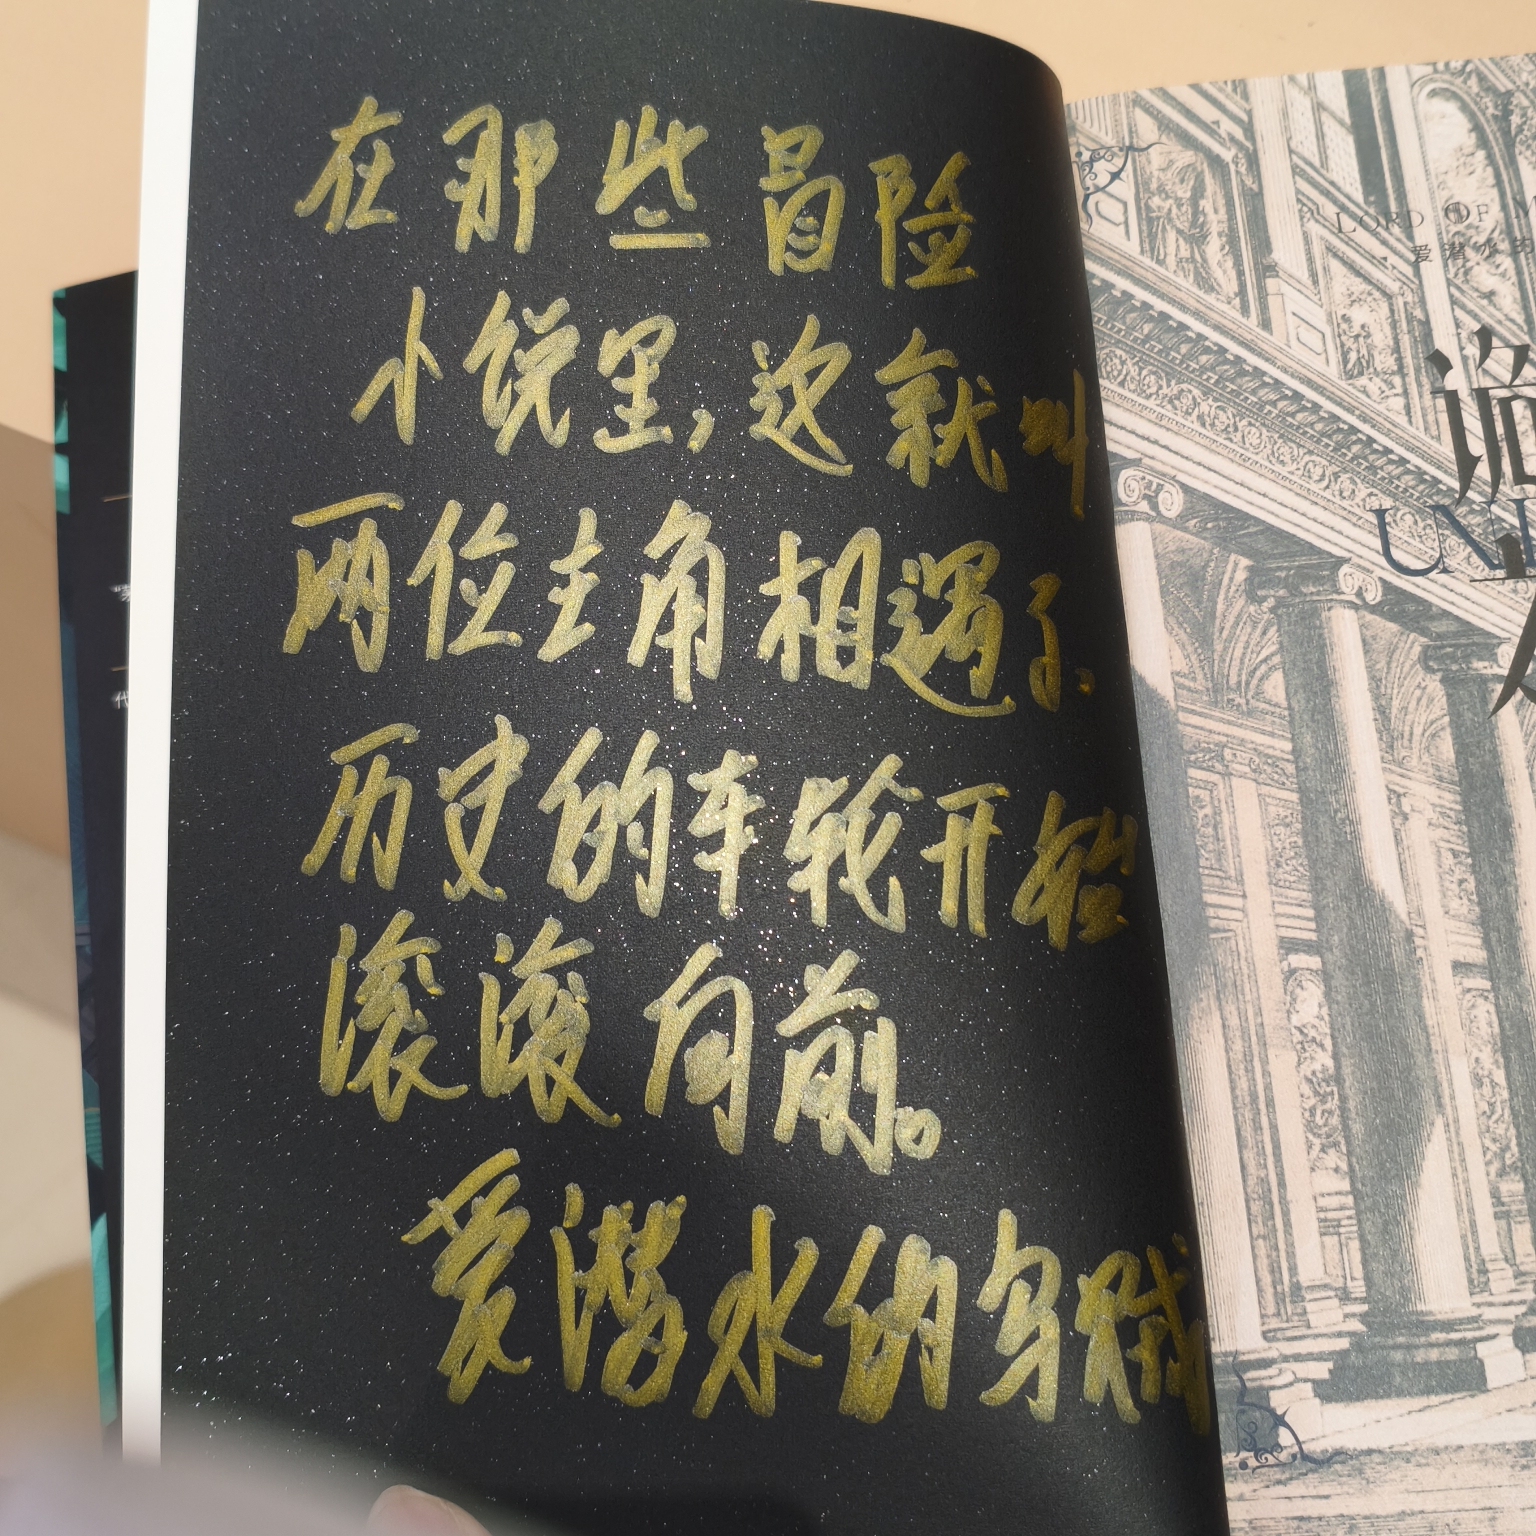 在那些冒险
小说里,这就叫
两位主角相遇了、
历史的车轮开始
滚滚向前。
爱潜水的乌贼
LORD OF
爱潜水的
诡
UNI